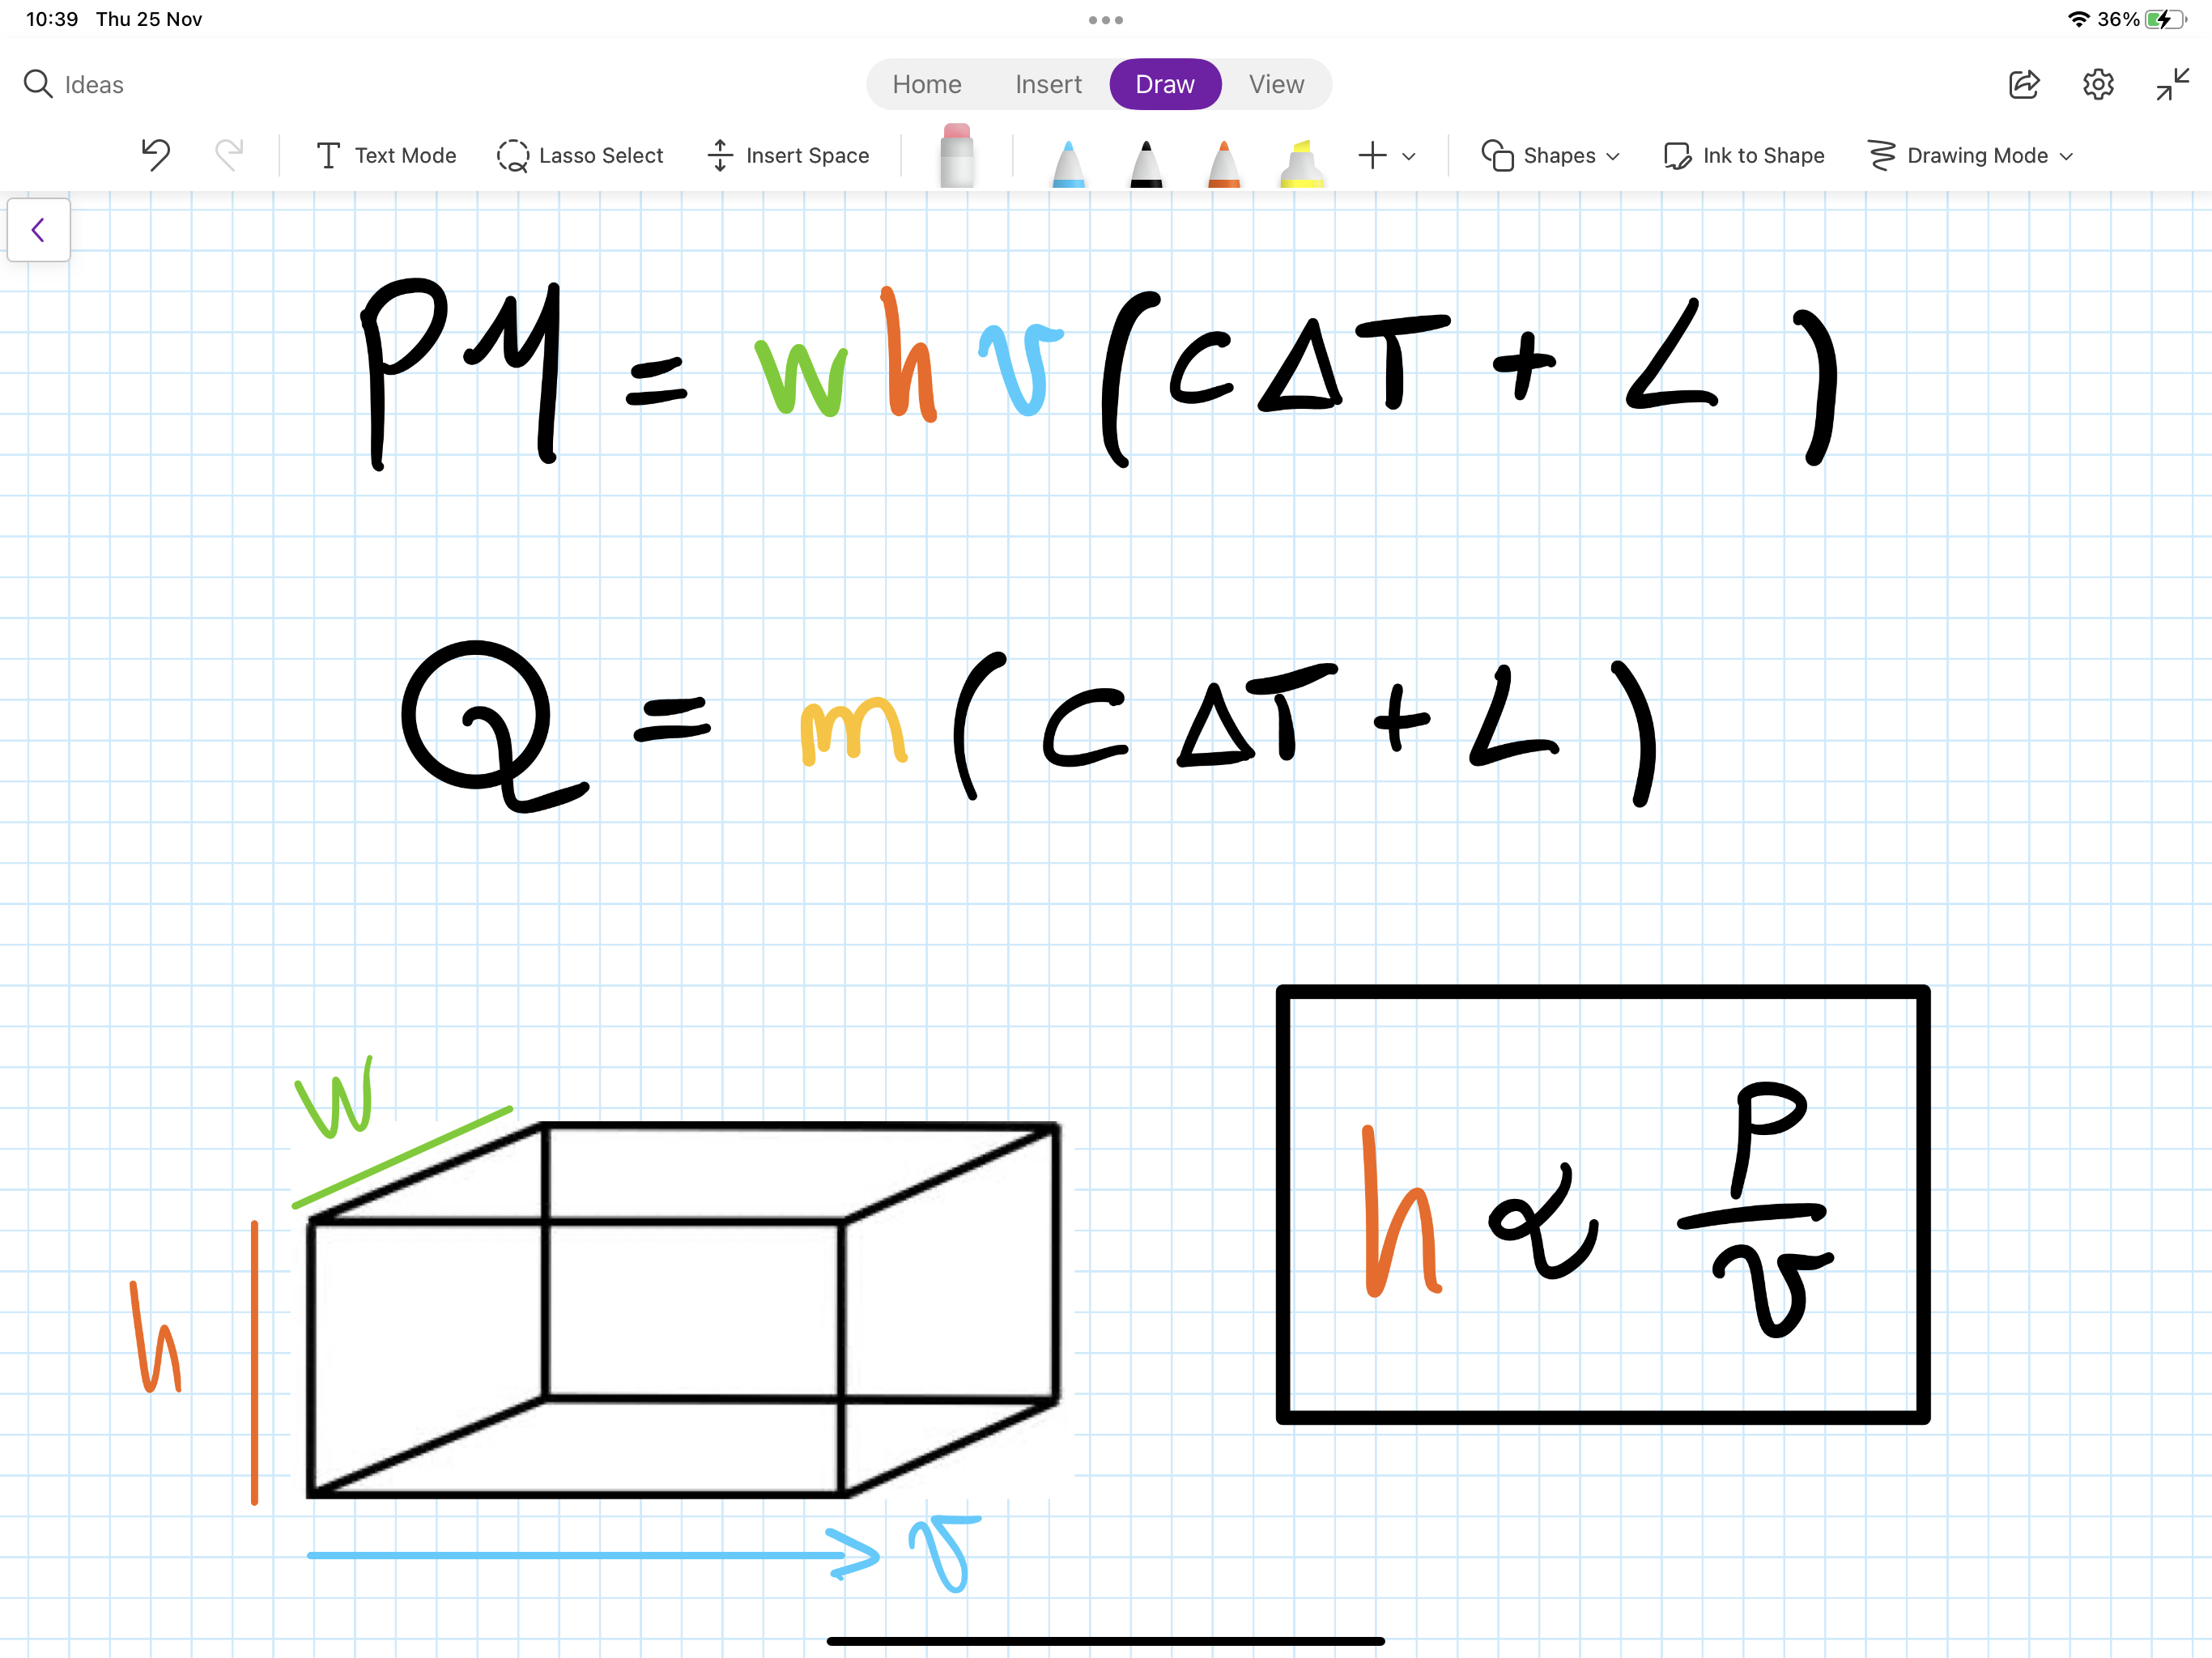 10:39 Thu 25 Nov 36%
Ideas Home Insert Draw View
Text Mode Lasso Select Insert Space Shapes Ink to Shape Drawing Mode
PM = whv(CΔT + L)
Q = m(CΔT + L)
w
h
v
h ∝ P/v